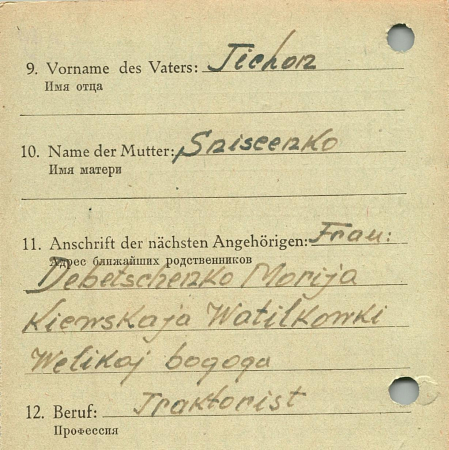 9. Vorname des Vaters: Tichon
Имя отца
10. Name der Mutter: Sniscenko
Имя матери
11. Anschrift der nächsten Angehörigen: Frau:
Адрес ближайших родственников
Debetschenko Marija
Kiewskaja Watilkowki
Welikaj bogoga
12. Beruf: Traktorist
Профессия